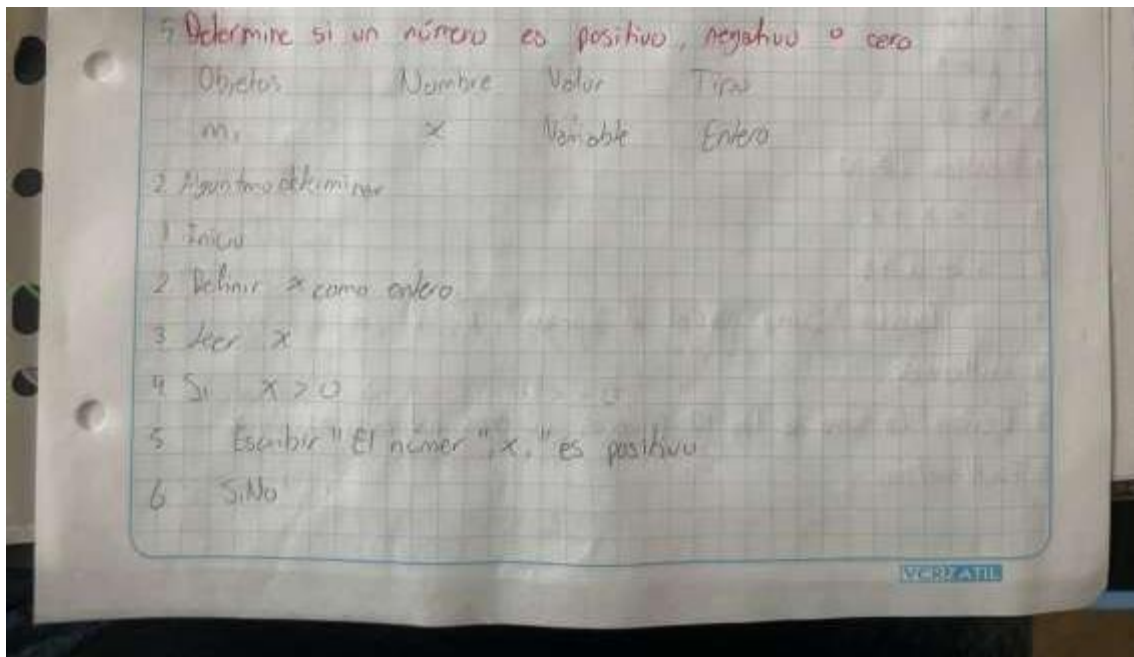 5 Determine si un número es positivo, negativo o cero
Objetos Nombre Valor Tipo
m, x Variable Entero
2 Algoritmo determinar
1 Inicio
2 Definir x como entero
3 Leer x
4 Si x > 0
5 Escribir "El númer", x, "es positivo
6 SiNo